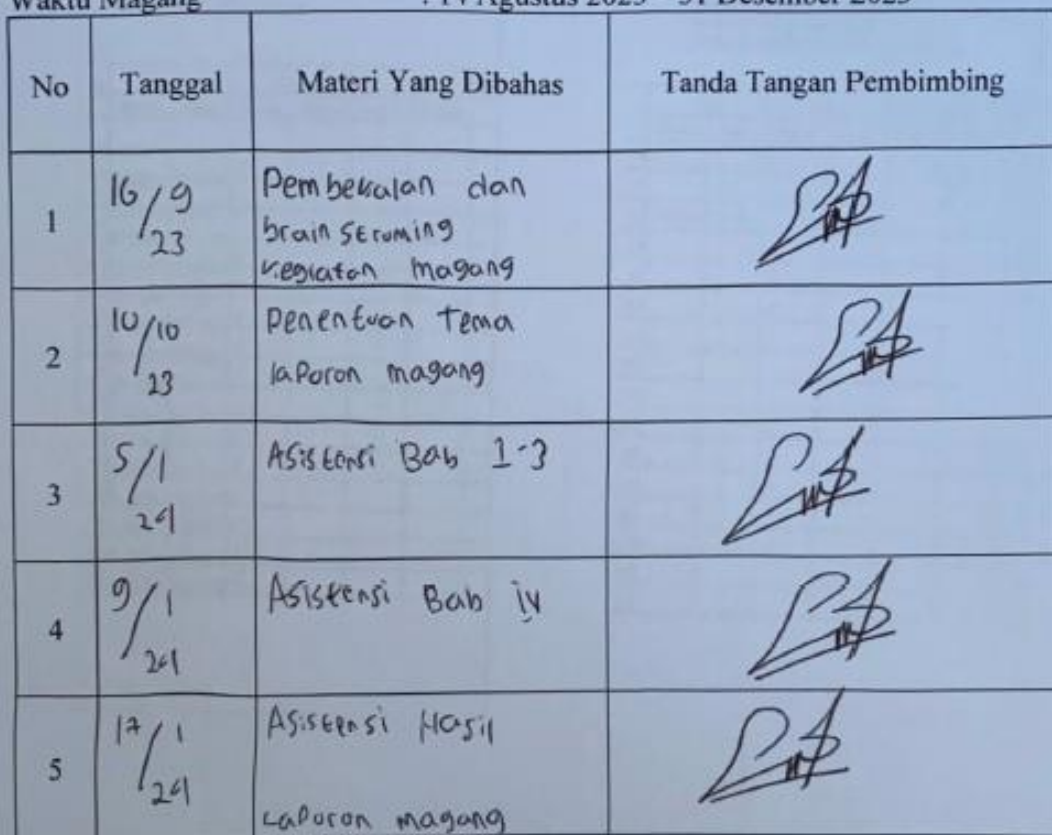 Waktu Magang : 14 Agustus 2023 – 31 Desember 2023
No Tanggal Materi Yang Dibahas Tanda Tangan Pembimbing
1 16/9/23 Pembekalan dan
brain storming
kegiatan magang
2 10/10/23 Penentuan tema
laporan magang
3 5/1/24 Asistensi Bab 1-3
4 9/1/24 Asistensi Bab iv
5 17/1/24 Asistensi Hasil
Laporan magang